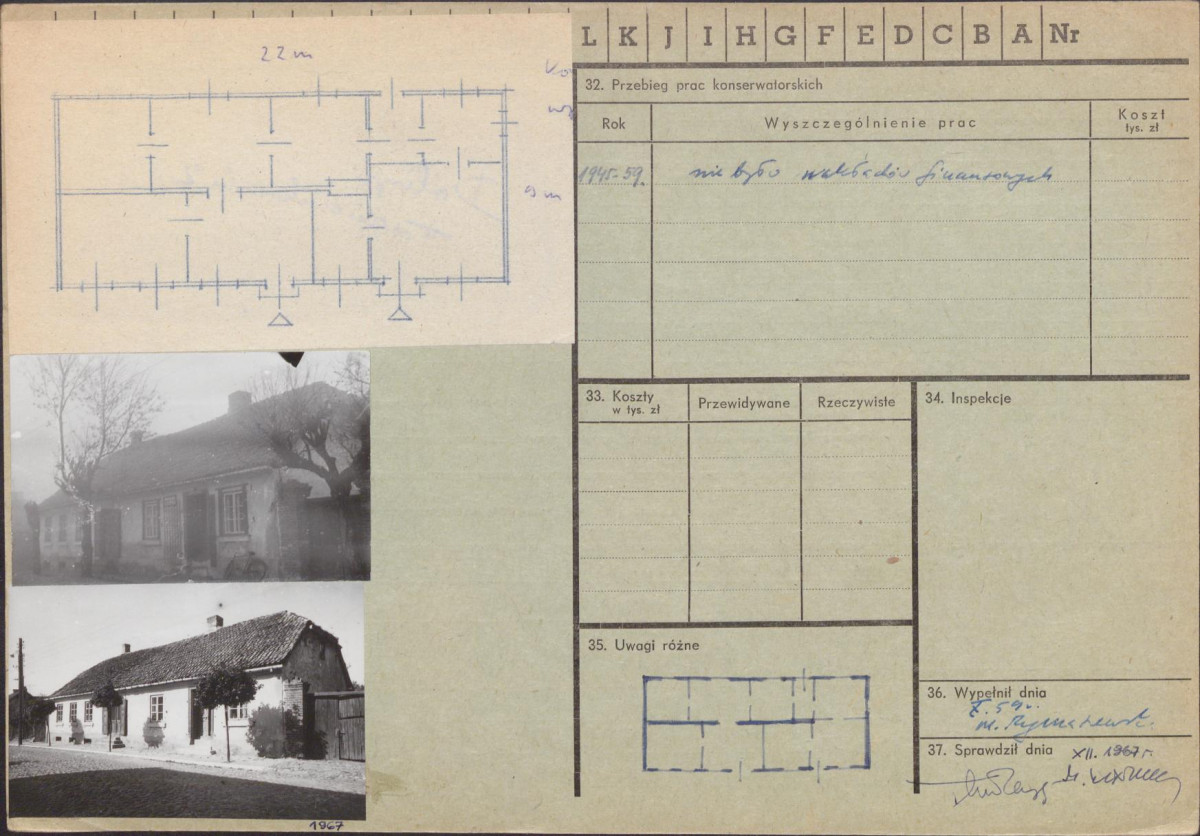 22 m
9 m
1967
L K J I H G F E D C B A Nr
32. Przebieg prac konserwatorskich
Rok Wyszczególnienie prac Koszt tys. zł
1945-59. nie było wkładów finansowych
33. Koszty w tys. zł Przewidywane Rzeczywiste
34. Inspekcje
35. Uwagi różne
36. Wypełnił dnia
X. 59 r.
37. Sprawdził dnia XII. 1967 r.